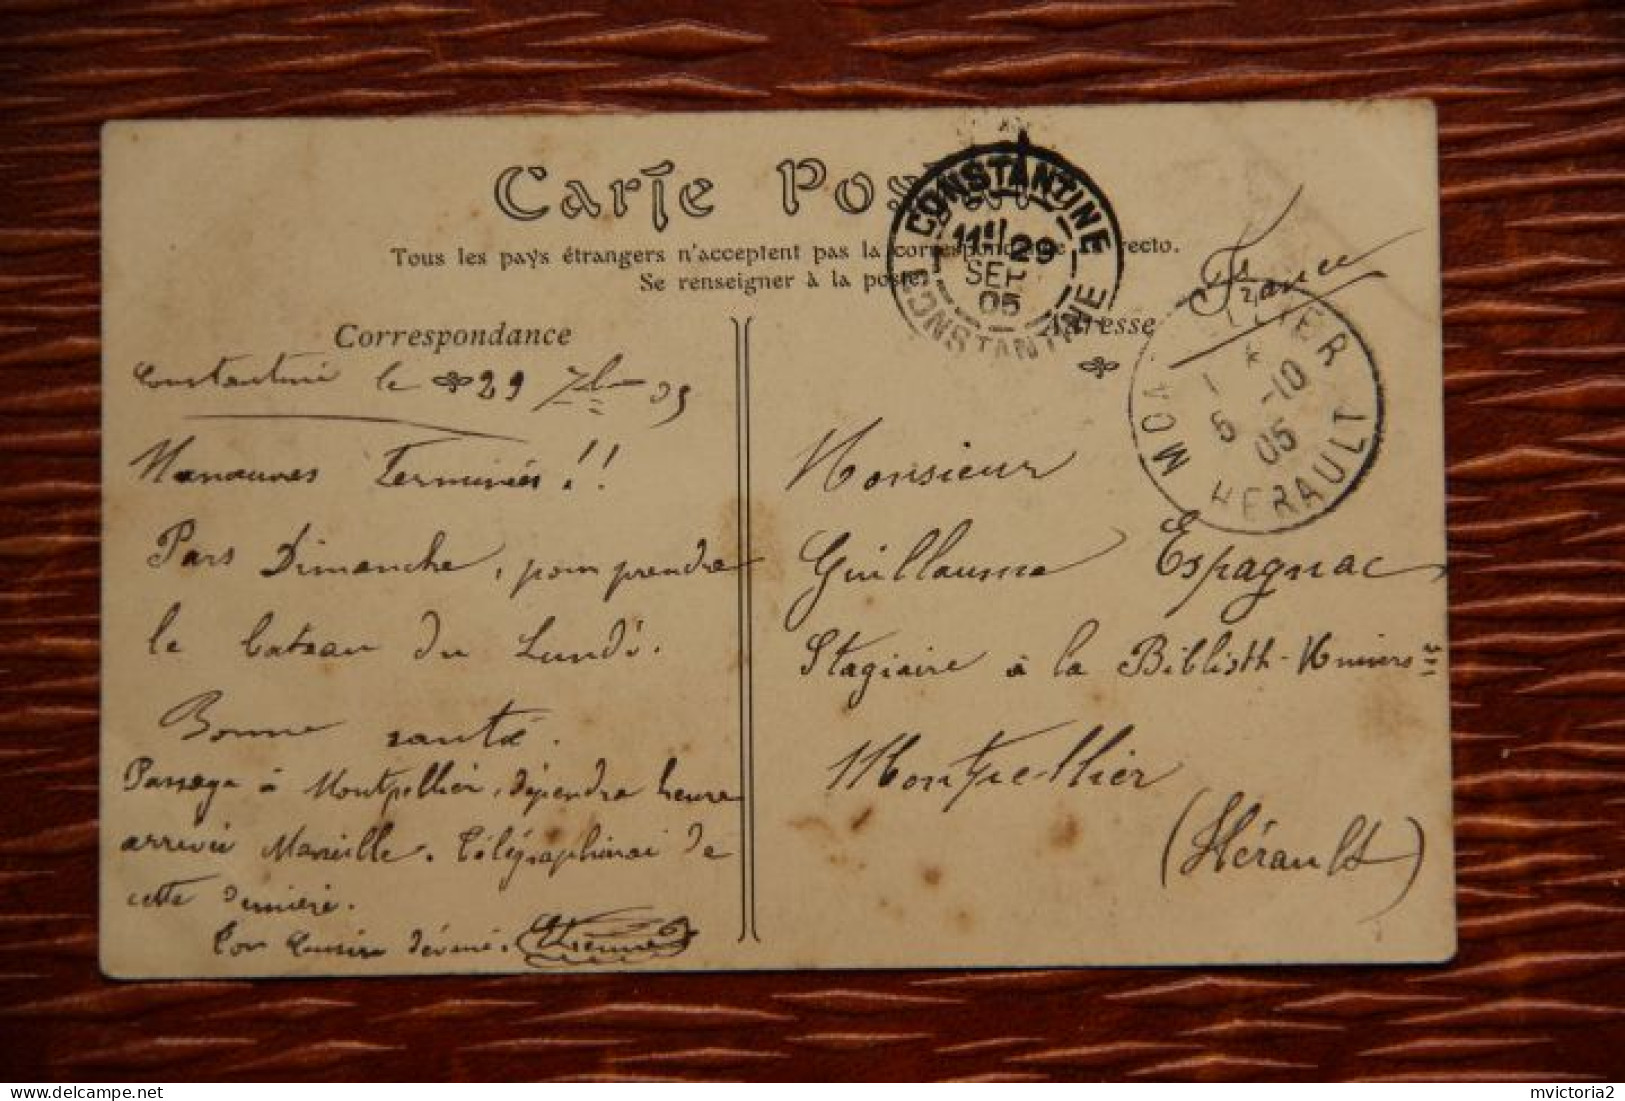 Carte Postale
Tous les pays étrangers n'acceptent pas la correspondance au recto.
Se renseigner à la poste.
Correspondance
Adresse
CONSTANTINE
29
SEP
05
CONSTANTINE
France
MONTPELLIER
1 -10
5 05
HERAULT
Constantine le 29 7bre 05
Manœuvres Terminées!!
Pars Dimanche, pour prendre
le bateau du Lundi.
Bonne santé.
Passage à Montpellier, dépendra heure
arrivée Marseille. Télégraphierai de
cette dernière.
Ton Cousin dévoué. Etienne
Monsieur
Guillaume Espagnac
Stagiaire à la Biblioth. Univers.re
Montpellier
(Hérault)
mvictoria2